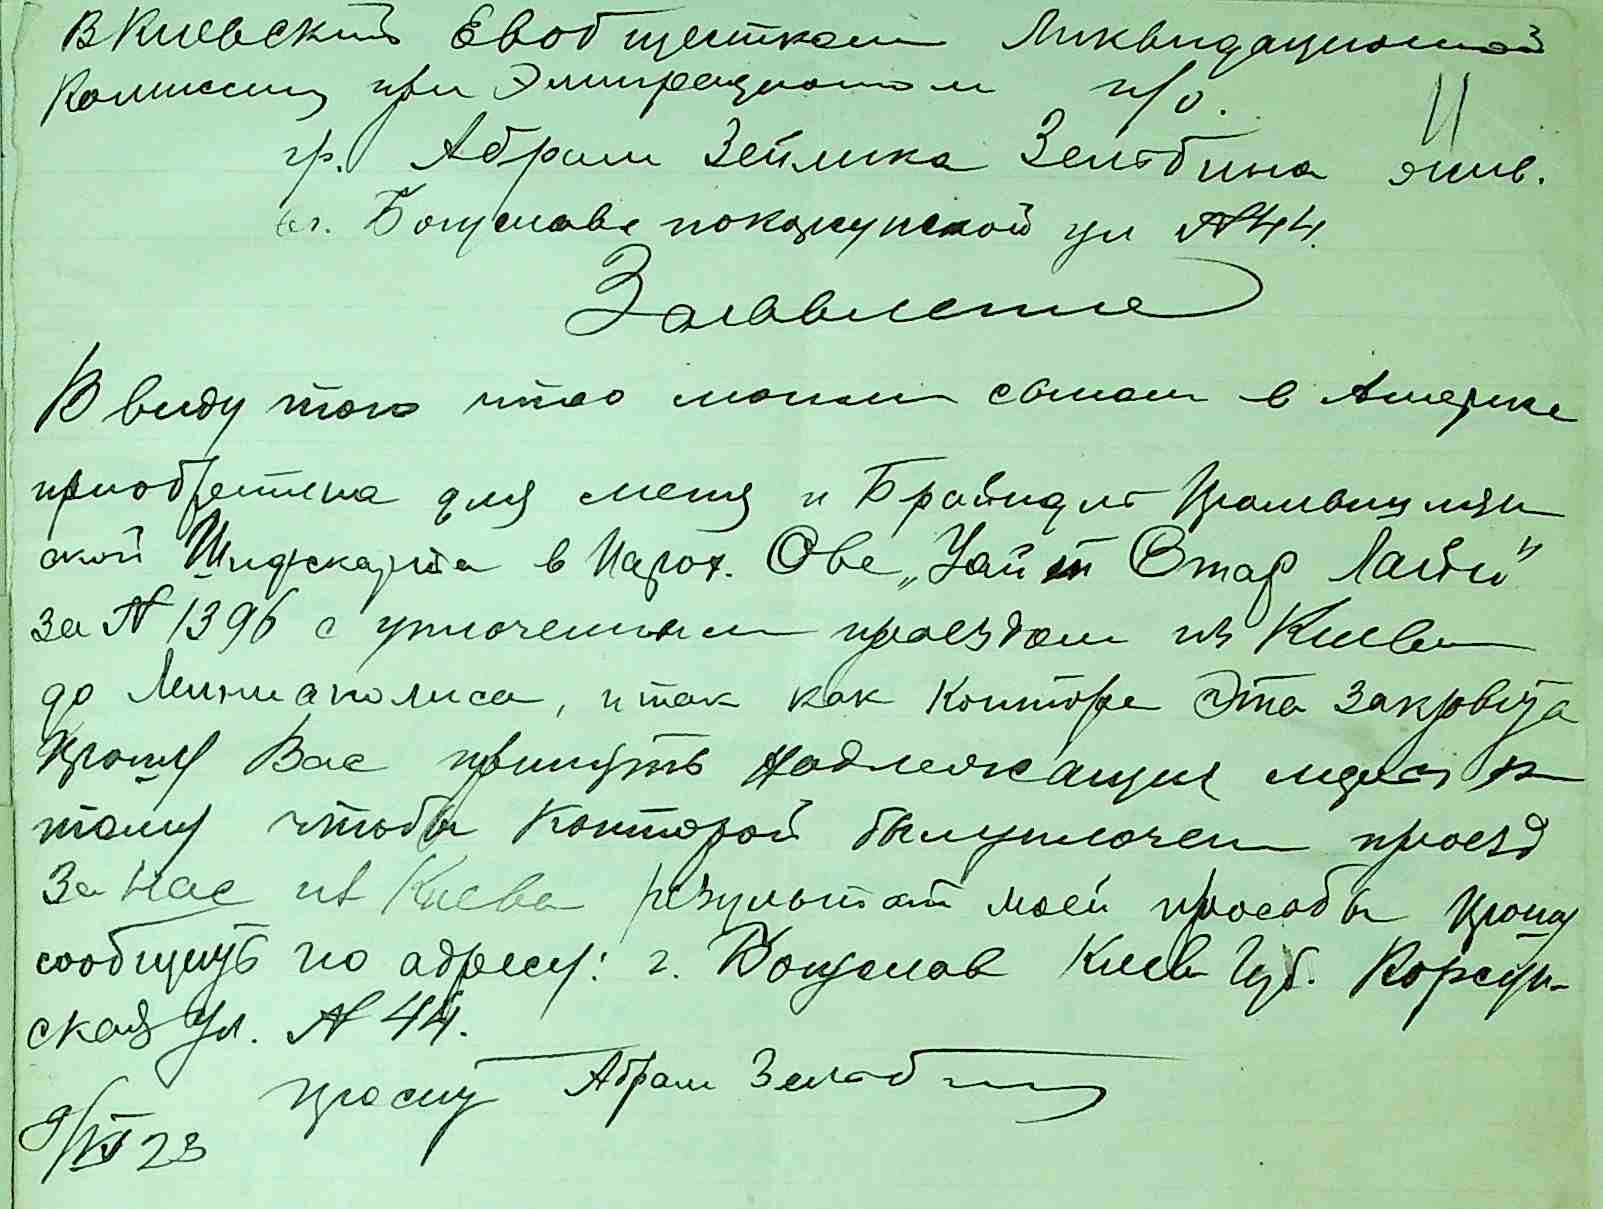 В Киевский Евобщестком Ликвидационной
Комиссии при Эмиграционном п/о.
гр. Абрам Зейлика Зельбина жив.
в г. Богуславе по Корсунской ул № 44.
Заявление
В виду того что моим сыном в Америке
приобретена для меня и Брайндль
ской Шифскарта в Парох. О-ве „Уайт Стар Лайн"
за № 1396 с уплоченным проездом из Киева
до Миниаполиса, и так как Контора Эта закрыта
Прошу Вас принять надлежащие меры к
тому чтобы Конторой был уплочен проезд
За нас из Киева результат моей прособы прошу
сообщить по адресу: г. Богуслав Киев Губ. Корсун-
ская ул. № 44.
Абрам Зельбин
23